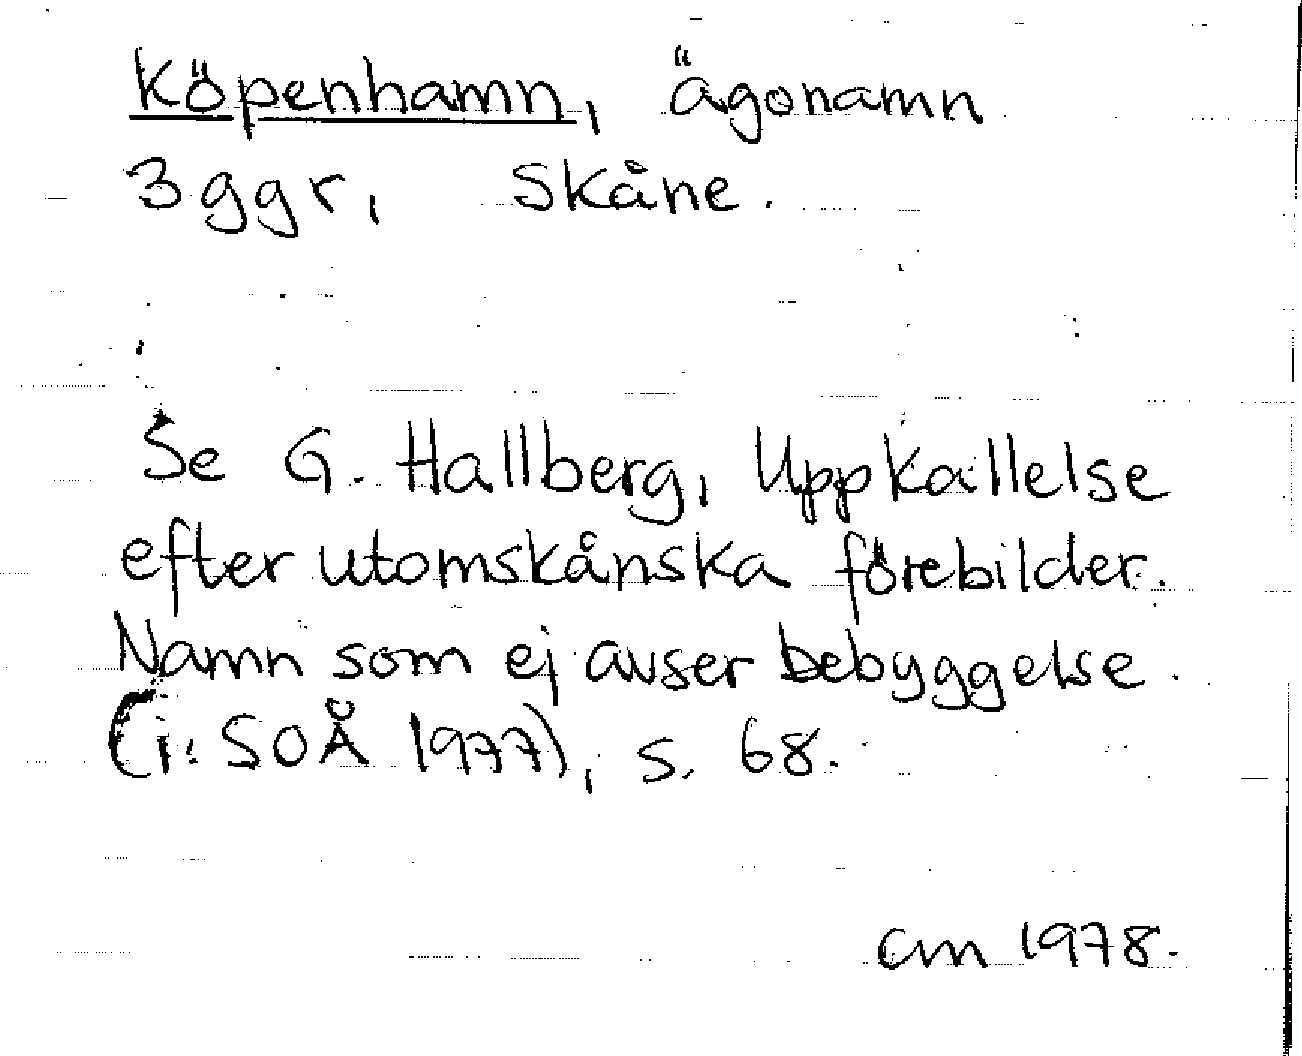 Köpenhamn, ägonamn
3 ggr, Skåne.
Se G. Hallberg, Uppkallelse
efter utomskånska förebilder.
Namn som ej avser bebyggelse.
(i: SOÅ 1977), s. 68.
cm 1978.